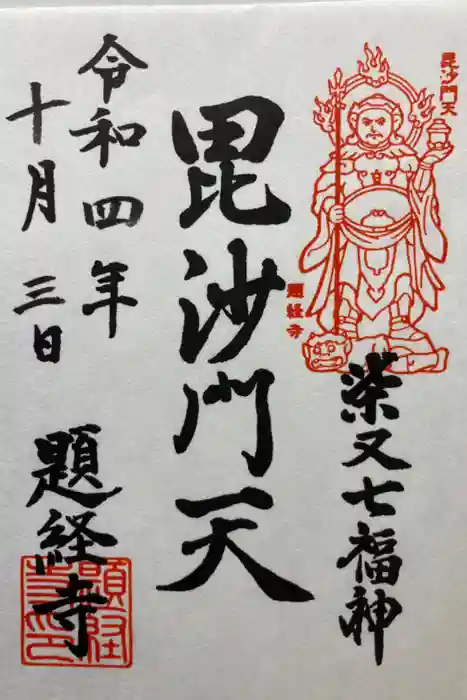 毘沙門天
題経寺
柴又七福神
毘沙門天
令和四年
十月三日
題経寺
題経寺印